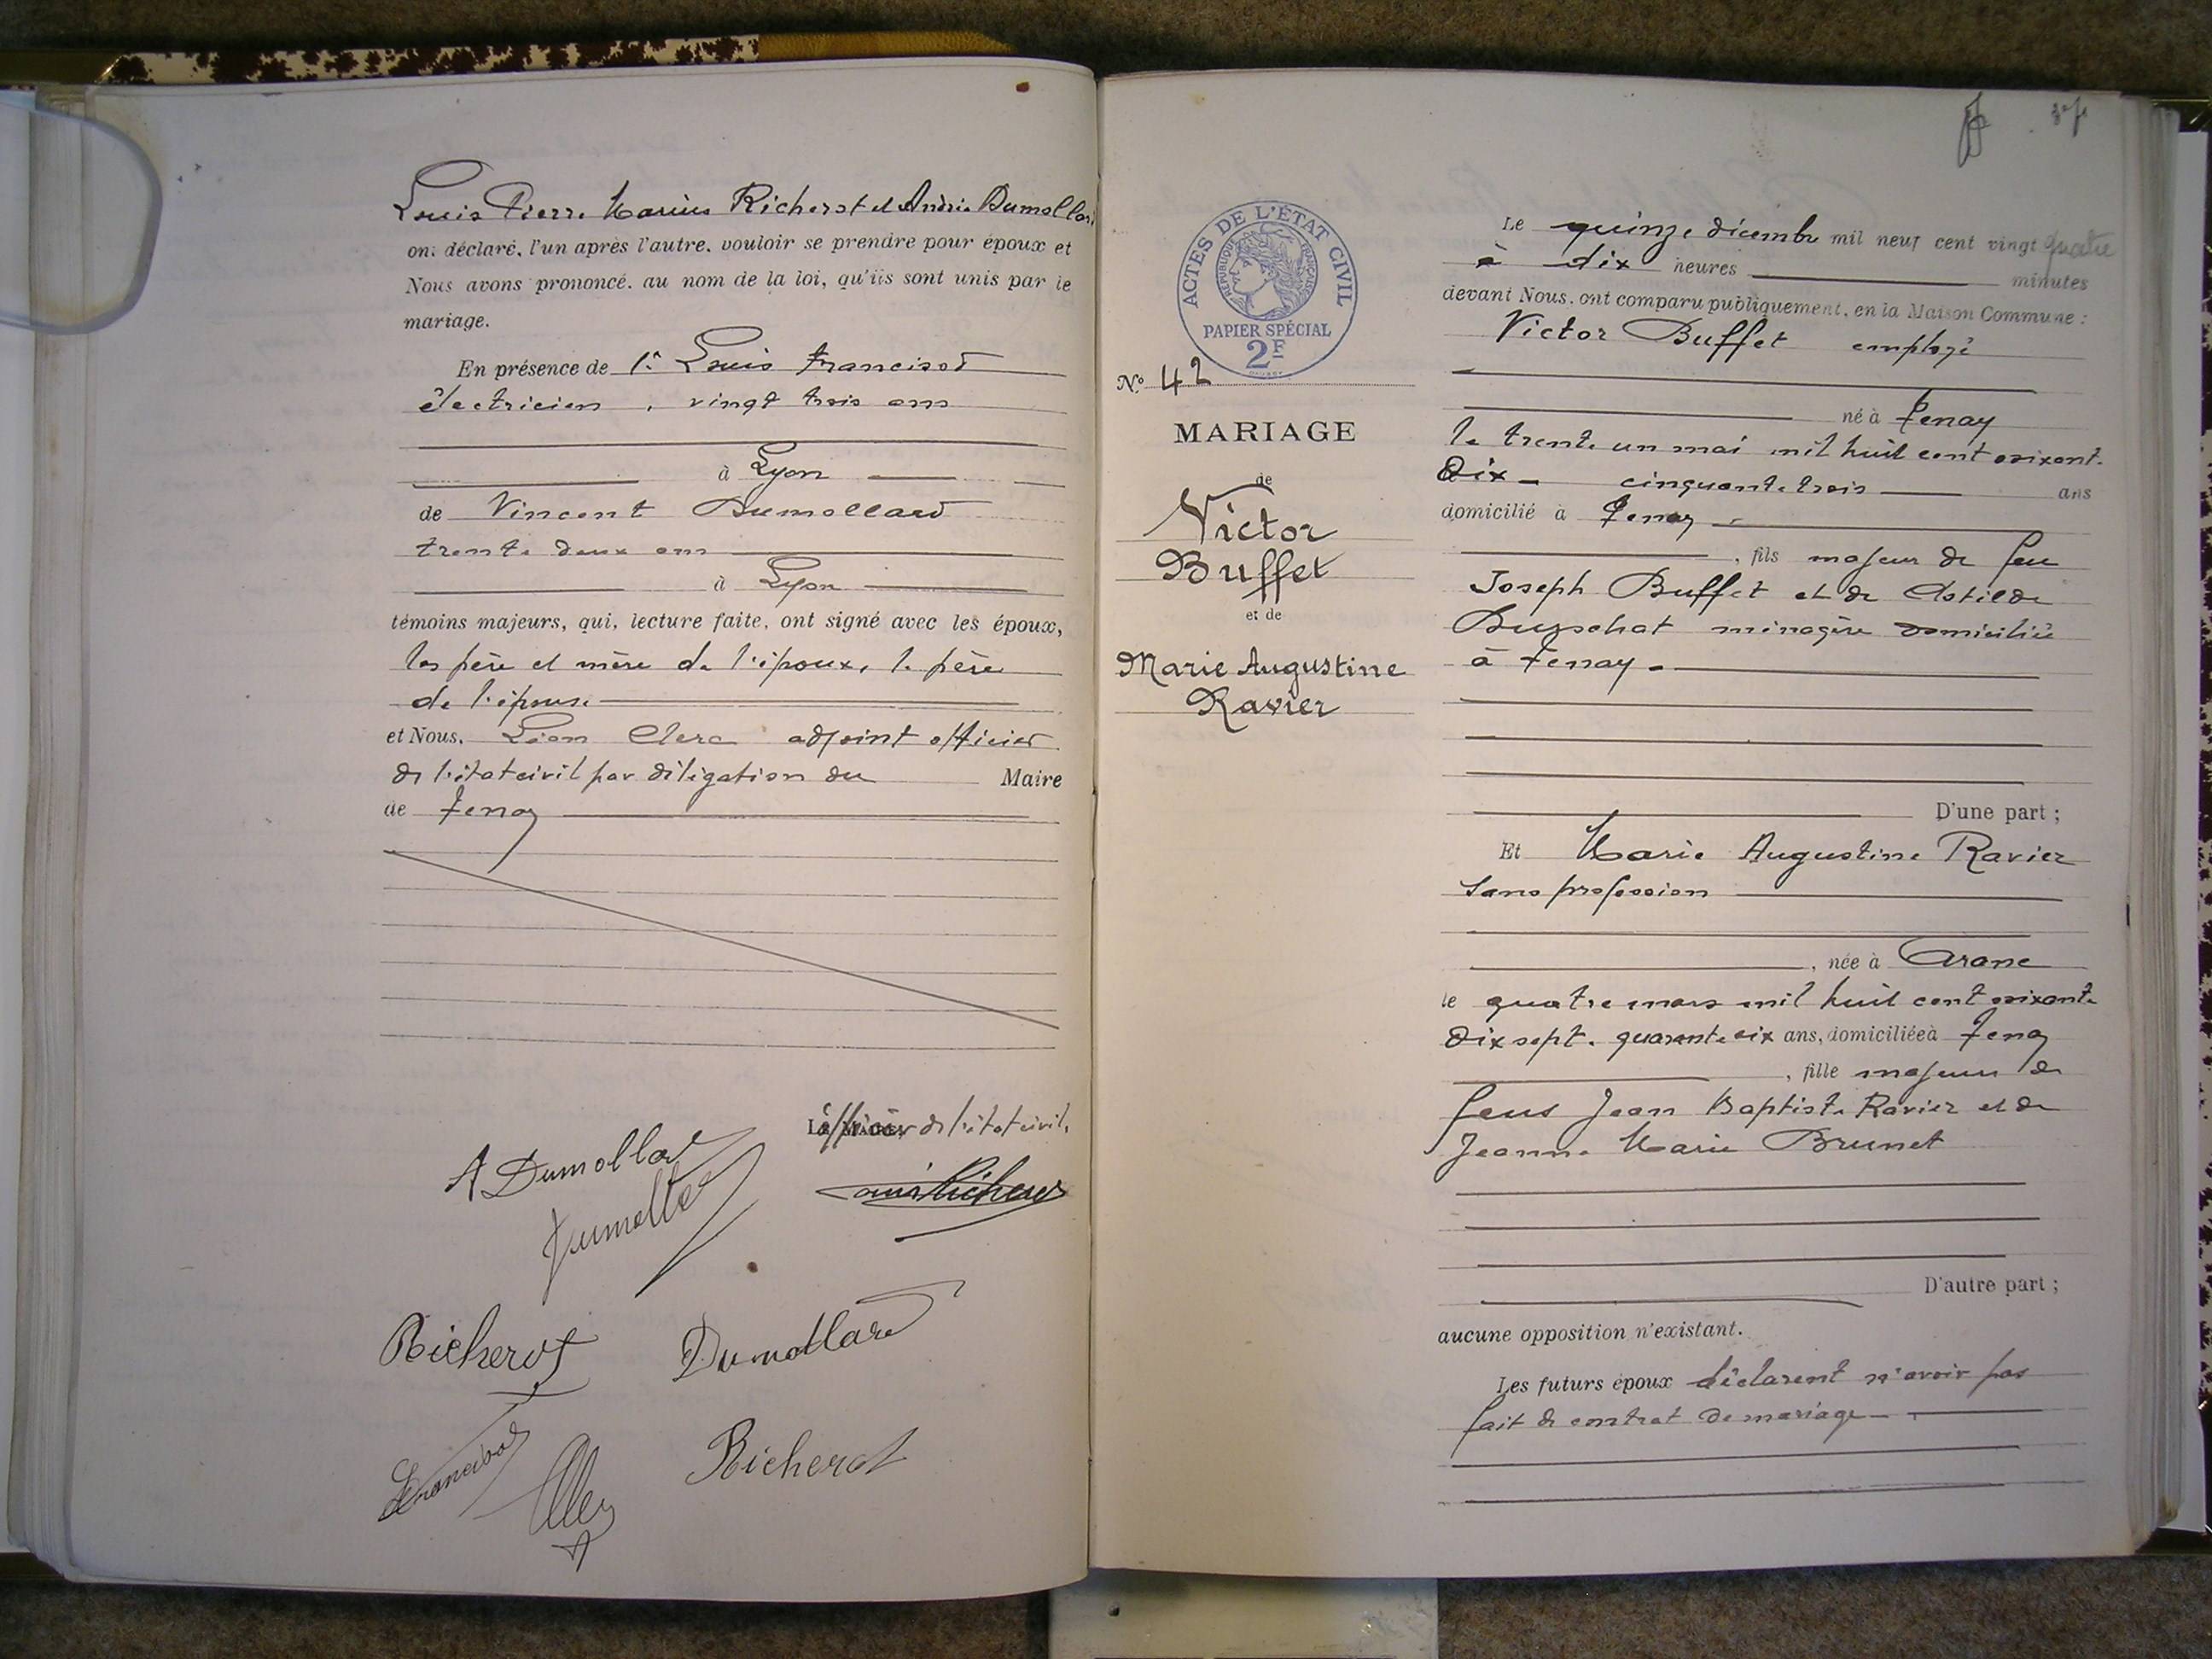 Louis Pierre Marius Richerot et Andrée Dumollard
ont déclaré, l'un après l'autre, vouloir se prendre pour époux et
Nous avons prononcé, au nom de la loi, qu'ils sont unis par le
mariage.
En présence de 1° Louis Francisod
électricien, vingt trois ans
à Lyon
de Vincent Dumollard
trente deux ans
à Lyon
témoins majeurs, qui, lecture faite, ont signé avec les époux,
les père et mère de l'époux, le père
de l'épouse
et Nous, Léon Clerc adjoint officier
de l'état civil par délégation du Maire
de Tenay
L'officier de l'état civil,
A Dumollard
Louis Richerot
Richerot Dumollard
Francisod Richerot
ACTES DE L'ÉTAT CIVIL
RÉPUBLIQUE FRANÇAISE
PAPIER SPÉCIAL
2F
N° 42
MARIAGE
de
Victor
Buffet
et de
Marie Augustine
Ravier
Le quinze décembre mil neuf cent vingt quatre
à dix heures minutes
devant Nous, ont comparu publiquement, en la Maison Commune :
Victor Buffet employé
né à Tenay
le trente un mai mil huit cent soixante
dix - cinquante trois ans
domicilié à Tenay
, fils majeur de feu
Joseph Buffet et de Clotilde
ménagère domiciliée
à Tenay -
D'une part ;
Et Marie Augustine Ravier
sans profession
, née à Arane
le quatre mars mil huit cent soixante
dix sept, quarante six ans, domiciliée à Tenay
, fille majeure de
feus Jean Baptiste Ravier et de
Jeanne Marie Brunet
D'autre part ;
aucune opposition n'existant.
Les futurs époux déclarent n'avoir pas
fait de contrat de mariage -